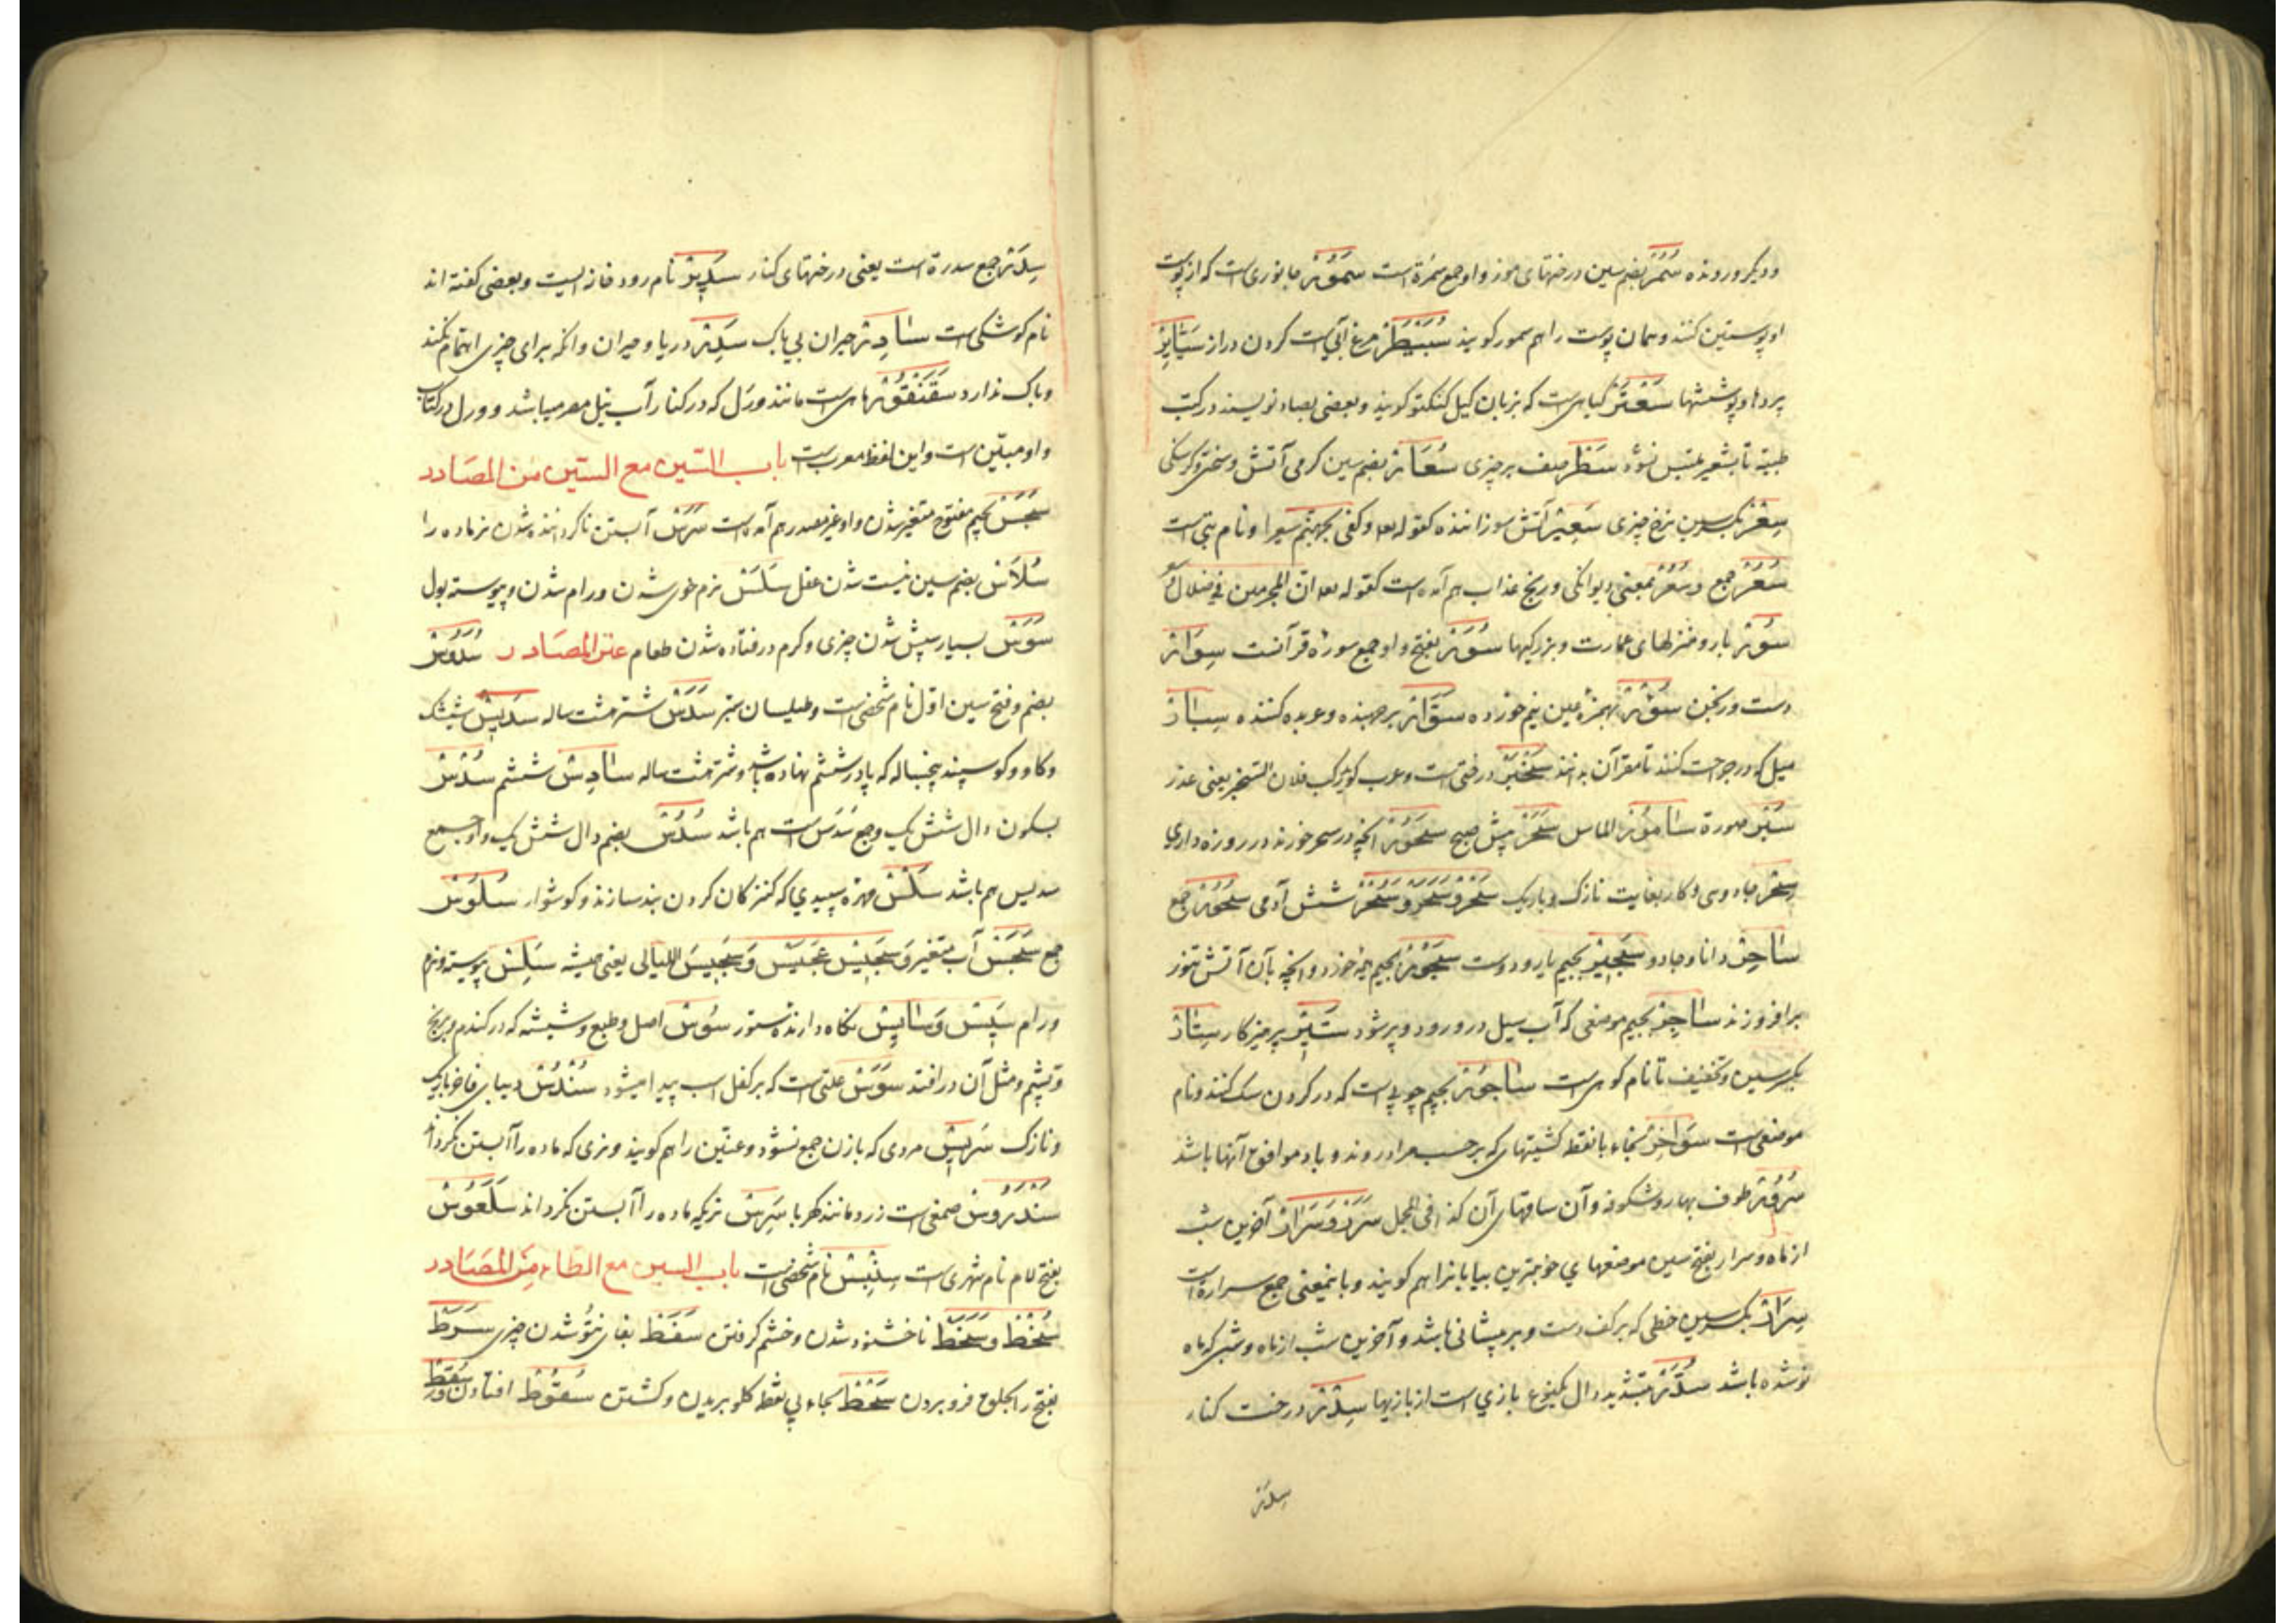 ودیکر ورونده سُمُر بضم سین درختهای موز واو جمع سمرة است سَمُّور جانوری است که از پوست
او پوستین کنند وهمان پوست را هم سمور کویند سُبَیْطَر مرغ آبی است کردن دراز سَتَایِر
پردها وپوششها سَعْتَر کیاهی است که بزبان کیل کویند وبعضی بصاد نویسند در کتب
طبیّه تا بشعیر ملتبس نشود سَطْر صف هر چیزی سُعَار بضم سین کرمی آتش وسختی کرسنکی
سِعْر بکسر سین نرخ چیزی سَعِیر آتش سوزاننده کقوله وکفی بجهنم سعیرا ونام بتی است
سُعُر جمع وسُعُر بمعنی دیوانکی ورنج عذاب هم آمده است کقوله ان المجرمین فی ضلال
سُور بارو ومنزلهای عمارت وبزرکیها سُوَر بفتح واو جمع سورهٔ قرآنست سِوَار
دست ورنجن سُؤْر بهمزهٔ عین نیم خورده سَوَّار برجهنده وعربده کننده سِبَار
میل که در جراحت کنند تا مقرآن بدانند سَخْبَر درختی است وعرب کوید رکب فلان السخبر یعنی غدر
سَبْر صورة سَامُور الماس سَحَر پیش صبح سَحُور آنچه در سحر خورند در روزه داری
سِحْر جادوی وکار بغایت نازک وباریک سَحْر وسَحَر وسُحْر شش آدمی سُحُور جمع
سَاحِر دانا وجادو سَجِیر بجیم یار ودوست سَجُور بجیم وآنچه بآن آتش تنور
برافروزند سَاجِر بجیم موضعی که آب سیل درو رود وپر شود سَتِیر پرهیزکار سِتَار
بکسر سین وتخفیف تا نام کوهی است سَاجُور بجیم چوبی است که در کردن سک کنند ونام
موضعی است سَوَاخِر بخاء با نقطه کشتیهای که بر حسب مراد روند وباد موافق آنها باشد
طرف بهار وشکوفه وآن ساقهای آن کذا فی المجمل سَرَر وسَرَار آخرین شب
از ماه وسرار بفتح سین موضعهای خوبترین بیابانرا هم کویند وباینمعنی جمع سراره است
سِرَار بکسر سین خطی که بر کف دست وبر پیشانی باشد وآخرین شب از ماه وشبی که ماه
نو شده باشد سُدَّر بتشدید دال یکنوع بازی است از بازیها سِدْر درخت کنار
سِدَر
سِدَر جمع سدرة است یعنی درختهای کنار سَدِیر نام رودخانه ایست وبعضی کفته اند
نام کوشکی است سَادِر حیران بی باک سَدِر دریا وحیران وانکه برای چیزی اهتمام نکند
وباک ندارد سَقَنْقُور ماهی است مانند ورل که در کنار آب نیل مصر میباشد وورل در کتاب
واو مبیّن است واین لفظ معرب است باب السّین مع السّین من المصَادر
سَجَس بجیم مفتوح متغیر شدن واو غیر مصدر هم آمده است سَرَس آبستن ناکرداننده شدن نر ماده را
سُلَاس بضم سین نیست شدن عقل سَلَس نرم خوی شدن ورام شدن وپیوسته بول
سَوَس بسیار شپش شدن چیزی وکرم در فتاده شدن طعام عن المصَادر سُدُوس
بضم وفتح سین اول نام شخصی است وطیلسان سبز سَدَس شتر هشت ساله سَدِیس شیشک
وکاو وکوسپند پنجساله که پا در ششم نهاده باشد وشتر هشت ساله سَادِس ششم سُدْس
بسکون دال شش یک وجمع سَدَس است هم باشد سُدُس بضم دال شش یک واو جمع
سدیس هم باشد سَلْس مهرهٔ سپیدی که کنیزکان کردن بند سازند وکوشوار سُلُوس
جمع سَجَس آب متغیر وسَجِیسَ عُجَیْس وسَجِیسَ اللیالی یعنی همیشه سَلِس پیوسته ونرم
ورام سَیِس وسَایِس نکاه دارندهٔ ستور سُوس اصل وطبع وشپشه که در کندم وبرنج
وپشم ومثل آن در افتد سَوَس علتی است که بر کفل اسب پیدا میشود سُنْدُس دیبای فاخر باریک
ونازک سَرِیس مردی که بازن جمع نشود وعنّین را هم کویند ونری که ماده را آبستن نکرداند
سَنْدَرُوس صمغی است زرد مانند کهربا سَرِس نریکه ماده را آبستن نکرداند سَلَعُوس
بفتح لام نام شهری است سِنْبِس نام شخصی است باب السین مع الطاء من المصَادر
سُخْط وسَخَط ناخشنود شدن وخشم کرفتن سَفَط شدن چیزی سَرَط
بفتح را بحلق فرو بردن سَحْط بحاء بی نقطه کلو بریدن وکشتن سُقُوط افتادن